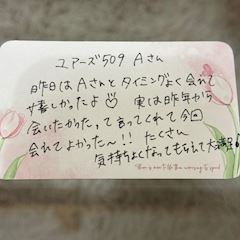 ユアーズ509 Aさん
昨日はAさんとタイミングよく会れて
嬉しかったよ 実は昨年から
会いたかったって言ってくれて今回
会れてよかった〜!! たくさん
気持ちよくなってもらえて大満足